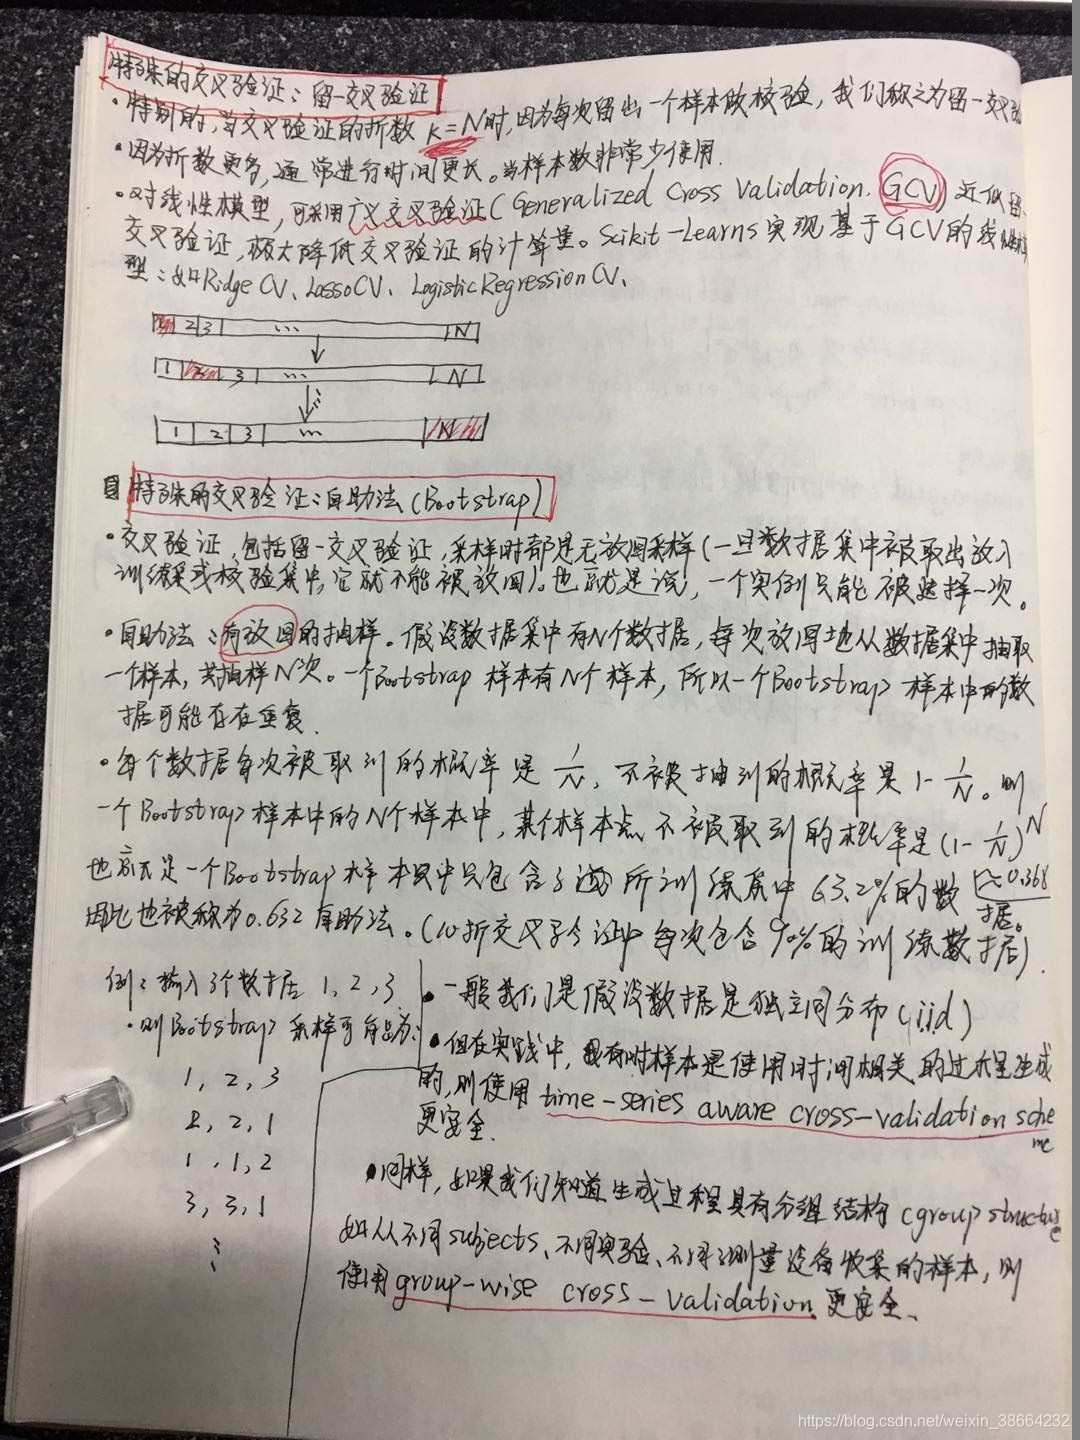 特殊的交叉验证：留一交叉验证
·特别的，当交叉验证的折数 K=N时，因为每次留出一个样本做校验，我们称之为留一交叉验
·因为折数更多，通常进行时间更长。当样本数非常少使用.
·对线性模型，可采用广义交叉验证(Generalized Cross Validation. GCV) 近似留一
交叉验证，极大降低交叉验证的计算量。Scikit-Learns实现基于GCV的线性模
型：如RidgeCV、LassoCV、LogisticRegressionCV、
2 3 ... N
1 3 ... N
1 2 3 ... N
特殊的交叉验证：自助法(Bootstrap)
·交叉验证，包括留一交叉验证，采样时都是无放回采样(一旦数据集中被取出放入
训练集或校验集中，它就不能被放回)。也就是说，一个实例只能被选择一次。
·自助法：有放回的抽样。假设数据集中有N个数据，每次放回地从数据集中抽取
一个样本，共抽样N次。一个Bootstrap 样本有N个样本，所以一个Bootstrap 样本中的数
据可能存在重复.
·每个数据每次被取到的概率是 1/N，不被抽到的概率是 1-1/N。则
一个Bootstrap样本中的N个样本中，某个样本点不被取到的概率是(1-1/N)^N
≈0.368
也就是一个Bootstrap样本只中只包含了 所训练集中 63.2%的数据。
因此也被称为0.632自助法。(10折交叉验证中每次包含90%的训练数据).
例：输入3个数据 1，2，3
·则Bootstrap 采样可能为：
1，2，3
2，2，1
1，1，2
3，3，1
⋮
·一般我们是假设数据是独立同分布(iid)
·但在实践中，我有时样本是使用时间相关的过程生成
的，则使用 time-series aware cross-validation sche
me
更安全.
·同样，如果我们知道生成过程具有分组结构(group structure
如从不同subjects、不同实验、不同测量设备收集的样本，则
使用group-wise cross-validation 更安全、
https://blog.csdn.net/weixin_38664232